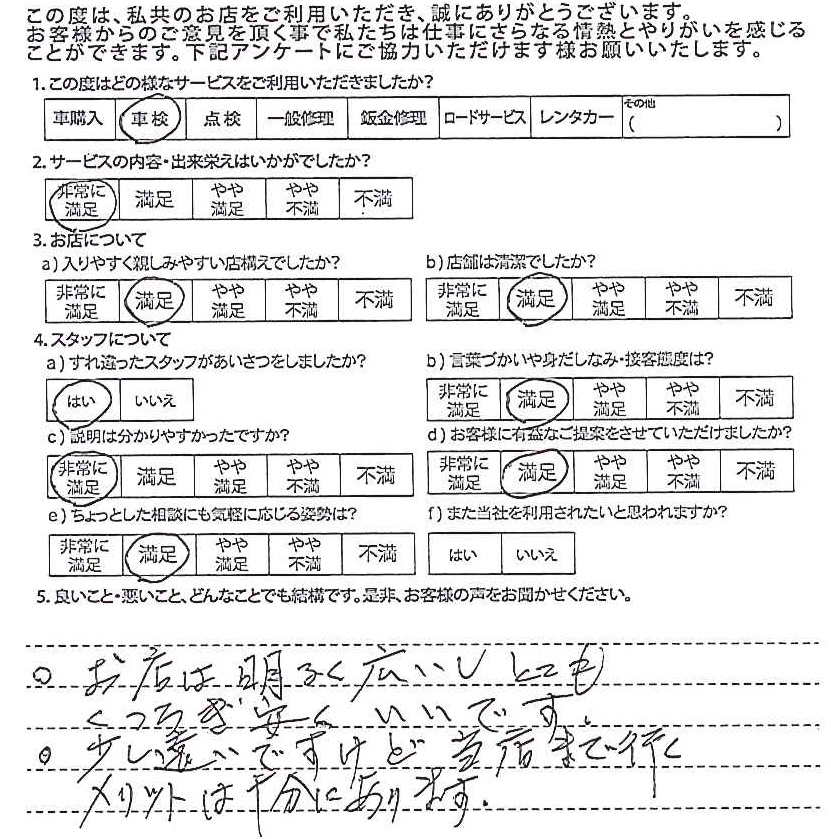 この度は、私共のお店をご利用いただき、誠にありがとうございます。
お客様からのご意見を頂く事で私たちは仕事にさらなる情熱とやりがいを感じる
ことができます。下記アンケートにご協力いただけます様お願いいたします。
1.この度はどの様なサービスをご利用いただきましたか?
車購入 車検 点検 一般修理 鈑金修理 ロードサービス レンタカー その他 ( )
2.サービスの内容・出来栄えはいかがでしたか?
非常に満足 満足 やや満足 やや不満 不満
3.お店について
a)入りやすく親しみやすい店構えでしたか?
非常に満足 満足 やや満足 やや不満 不満
b)店舗は清潔でしたか?
非常に満足 満足 やや満足 やや不満 不満
4.スタッフについて
a)すれ違ったスタッフがあいさつをしましたか?
はい いいえ
b)言葉づかいや身だしなみ・接客態度は?
非常に満足 満足 やや満足 やや不満 不満
c)説明は分かりやすかったですか?
非常に満足 満足 やや満足 やや不満 不満
d)お客様に有益なご提案をさせていただけましたか?
非常に満足 満足 やや満足 やや不満 不満
e)ちょっとした相談にも気軽に応じる姿勢は?
非常に満足 満足 やや満足 やや不満 不満
f)また当社を利用されたいと思われますか?
はい いいえ
5.良いこと・悪いこと、どんなことでも結構です。是非、お客様の声をお聞かせください。
○ お店は明るく広いしとても
くつろぎ安くいいです。
○ 少し遠いですけど当店まで行く
メリットは十分にあります。